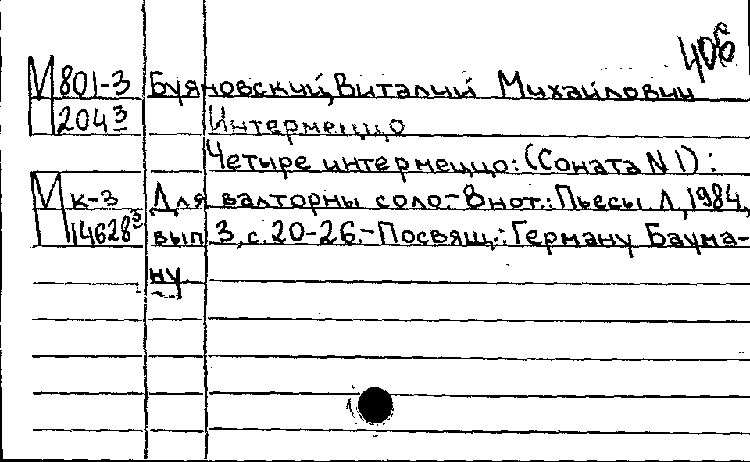 406
М 801-3 Буяновский, Виталий Михайлович
204 3 Интермеццо
Четыре интермеццо: (Соната N 1):
М к-3 Для валторны соло.- В нот.: Пьесы Л, 1984,
14628 3 вып 3, с. 20-26.- Посвящ.: Герману Баума-
ну